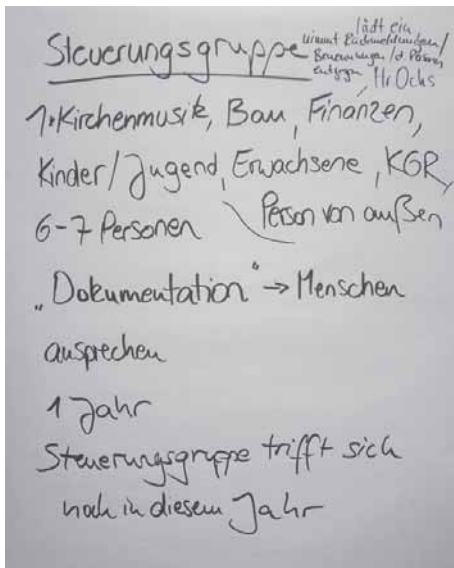 Steuerungsgruppe
lädt ein
nimmt Rückmeldungen/
Benennungen /d. Person
entgegen
Hr Ochs
1 Kirchenmusik, Bau, Finanzen,
Kinder/Jugend, Erwachsene, KGR,
6-7 Personen
Person von außen
„Dokumentation“ → Menschen
ansprechen
1 Jahr
Steuerungsgruppe trifft sich
noch in diesem Jahr